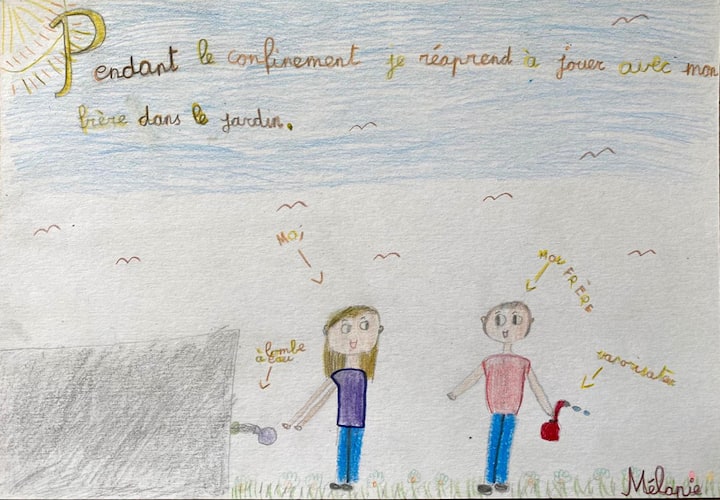 Pendant le confinement je réaprend à jouer avec mon
frère dans le jardin.
Moi
MON FRÈRE
bombe
à eau
vaporisateur
Mélanie